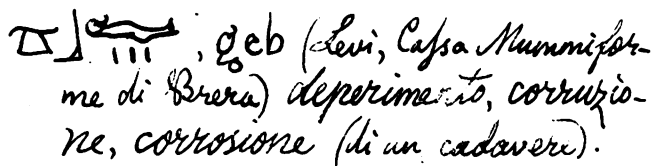 𓎼𓃀 , g̥eb (Levi, Caſsa Mummifor-
me di Brera) deperimento, corruzio-
ne, corrosione (di un cadavere).